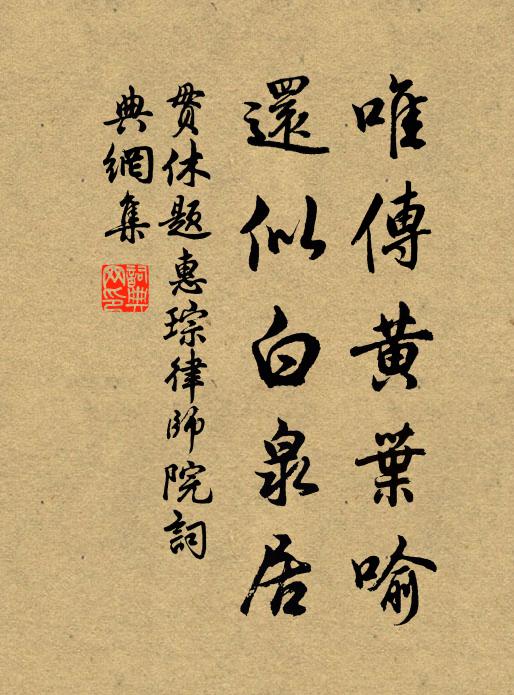 唯傳黃葉喻
還似白泉居
貫休題惠琮律師院詞
典網集
詞典网印